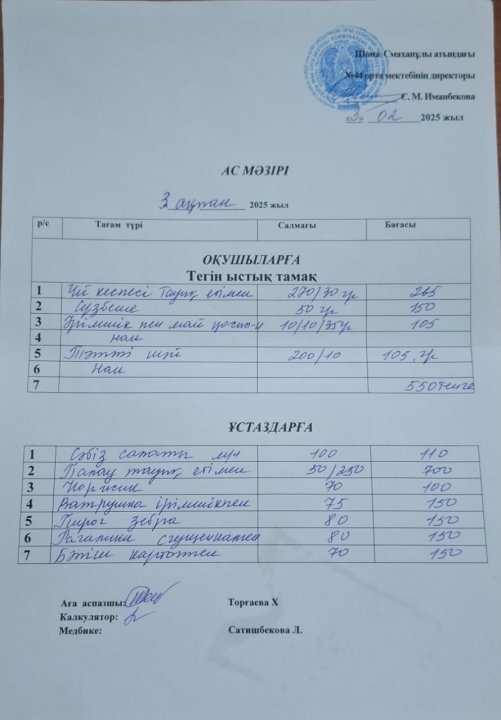 Шона Смаханұлы атындағы
№44 орта мектебінің директоры
Є. М. Иманбекова
«3» 02 2025 жыл
АС МӘЗІРІ
3 ақпан 2025 жыл
р/с Тағам түрі Салмағы Бағасы
ОҚУШЫЛАРҒА
Тегін ыстық тамақ
1 Үй кеспесі Тауық етімен 270/30 гр 265
2 50 гр 150
3 Ірімшік пен май қосыл-н 10/10/35гр 105
4 нан
5 Тәтті шәй 200/10 105. гр
6 Нан
7 550 тенге
ҰСТАЗДАРҒА
1 Сәбіз салаты 100 110
2 Палау тауық етімен 50/250 700
3 70 100
4 Ватрушка ірімшікпен 75 150
5 Пирог зебра 80 150
6 Рогалики сгущенкамен 80 150
7 Бәліш картоппен 70 150
Аға аспазшы: Торғаева Х
Калкулятор:
Медбике: Сатишбекова Л.